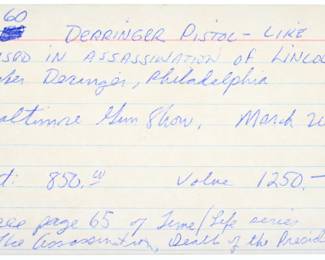 60
DERRINGER PISTOL - LIKE
USED IN ASSASSINATION OF LINCOL
Deringer, Philadelphia
altimore Gun Show, March 20
t: 850.00 Value 1250.-
ee page 65 of Time/Life series
The Assassination, Death of the Preside